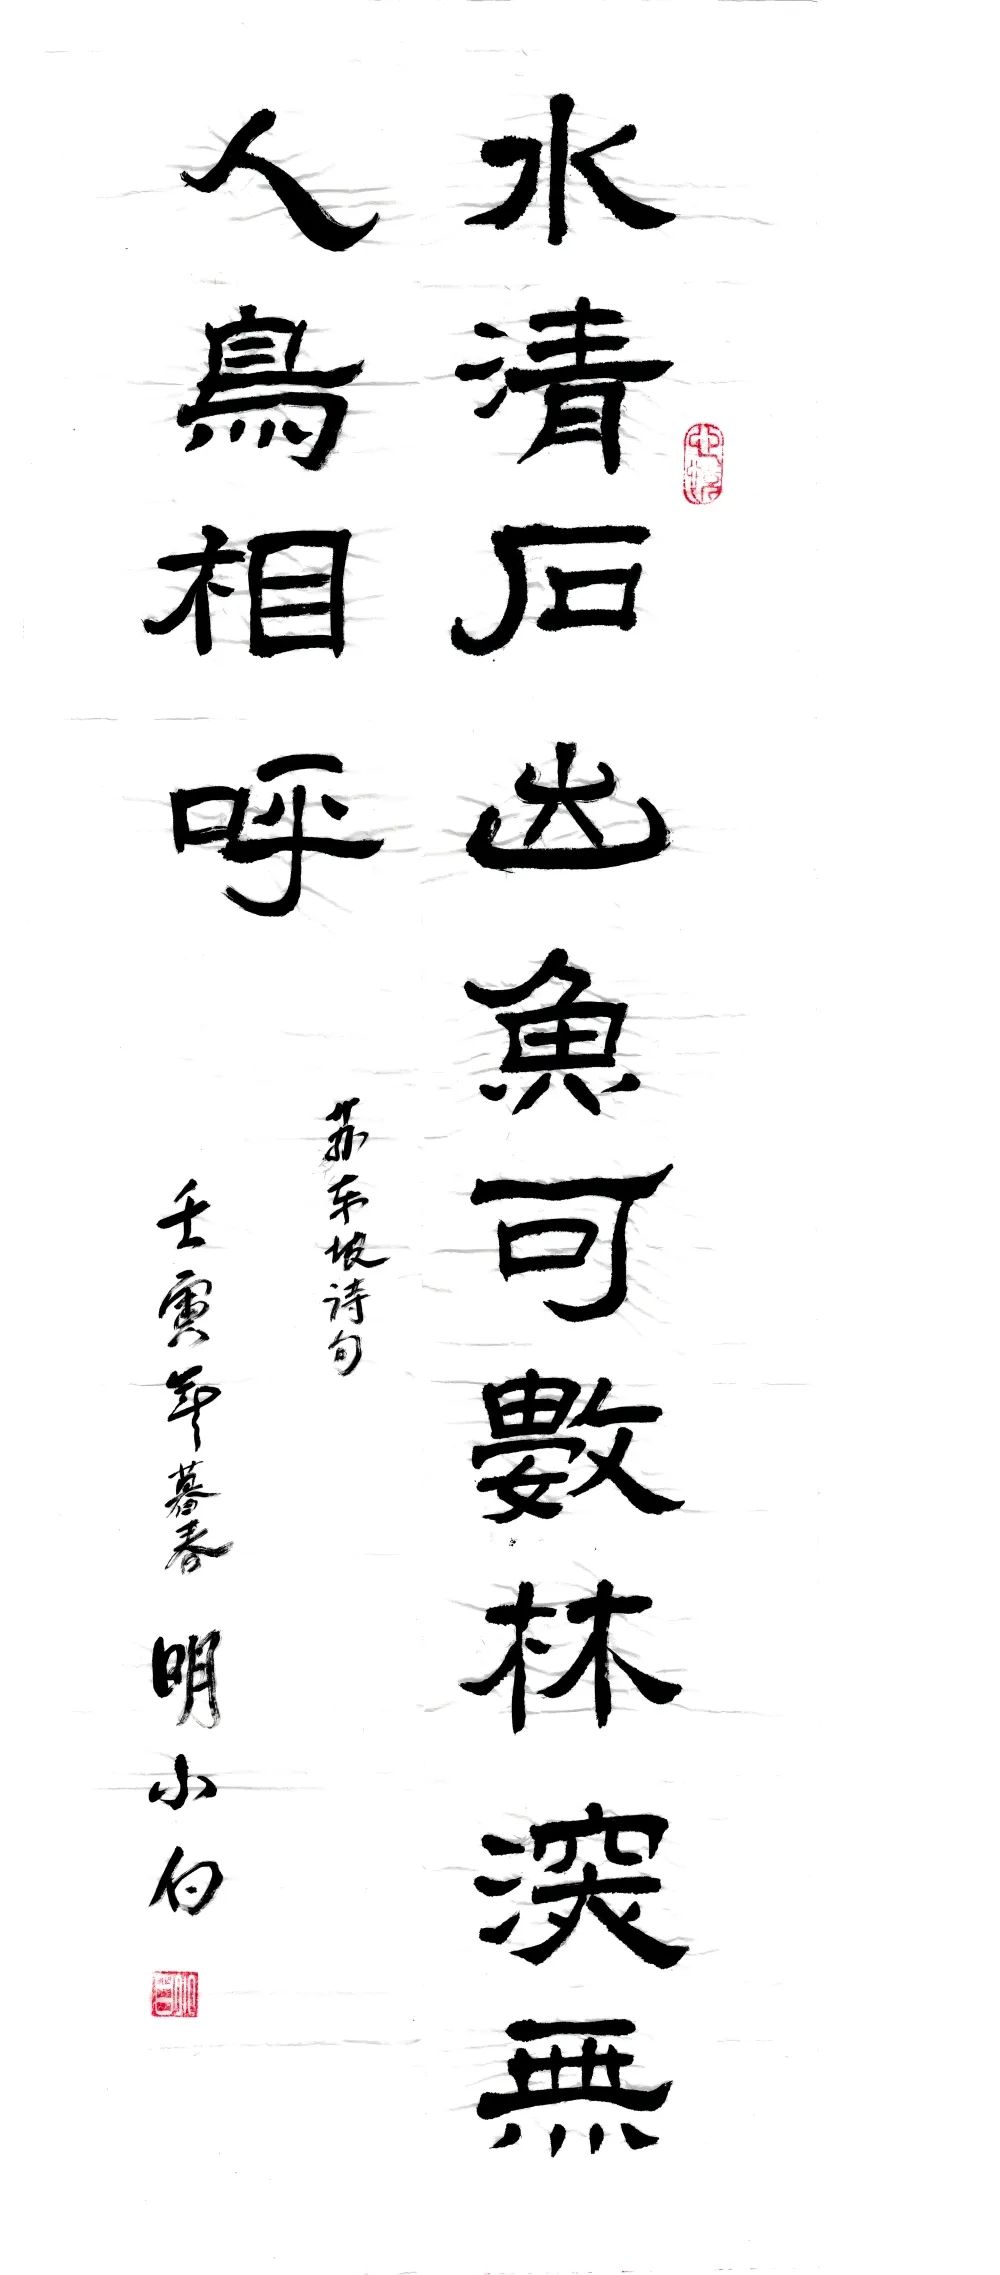 水清石出魚可數林深無
人鳥相呼
苏东坡诗句
壬寅年暮春明小白